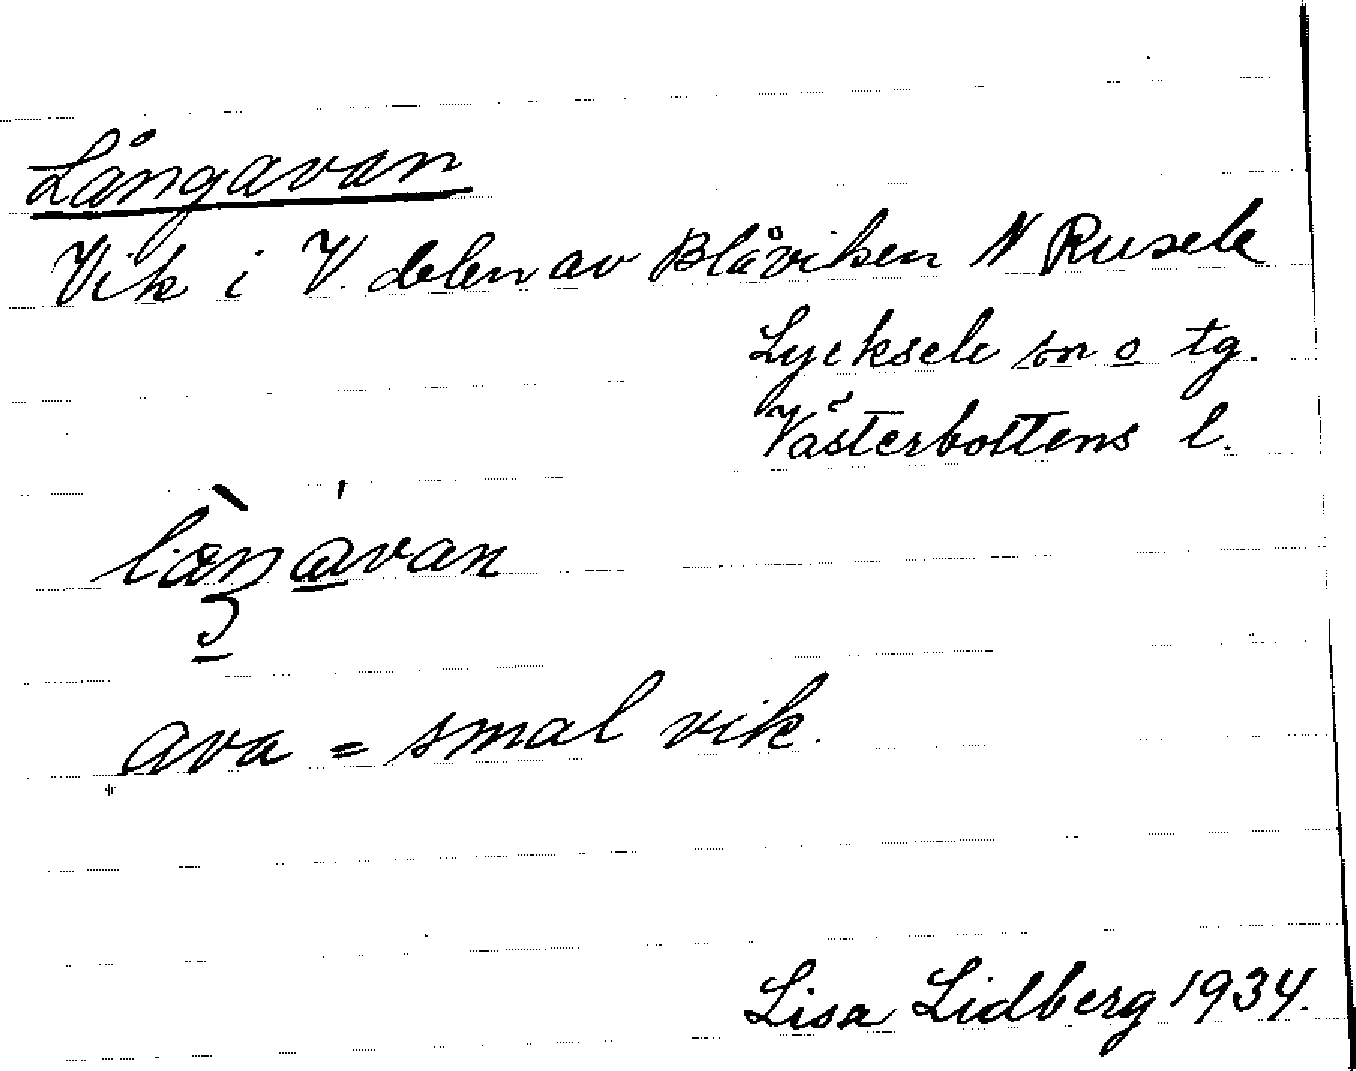 Långavan
Vik i V. delen av Blåviken N Rusele
Lycksele sn o tg.
Västerbottens l.
ava = smal vik.
Lisa Lidberg 1934.